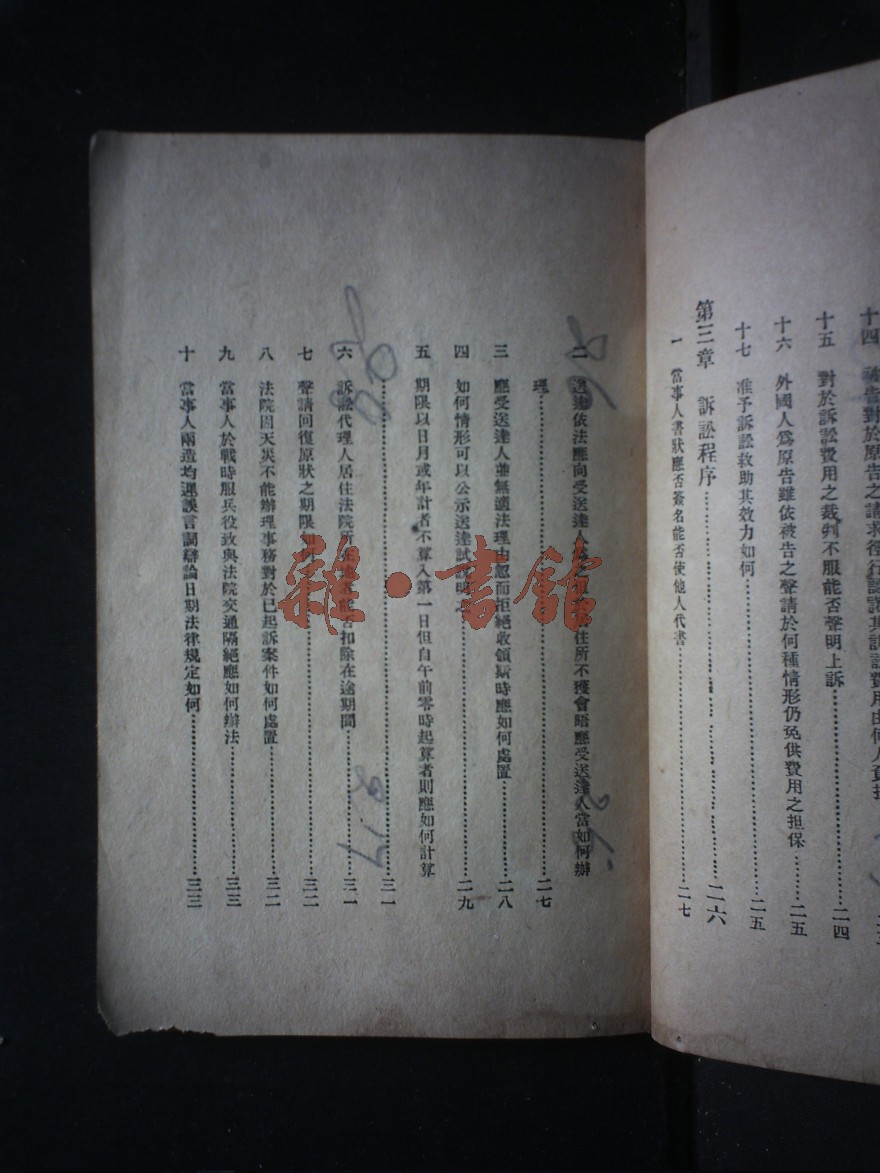 十四 被告對於原告之請求徑行認諾其訴訟費用由何人負担
十五 對於訴訟費用之裁判不服能否聲明上訴……二四
十六 外國人爲原告雖依被告之聲請於何種情形仍免供費用之担保……二五
十七 准予訴訟救助其效力如何……二五
第三章 訴訟程序……二六
一 當事人書狀應否簽名能否使他人代書……二七
二 送達依法應向受送達人爲之但 住所不獲會晤應受送達人當如何辦
理……二七
三 應受送達人並無適法理由忽而拒絕收領斯時應如何處置……二八
四 如何情形可以公示送達試說明之……二九
五 期限以日月或年計者不算入第一日但自午前零時起算者則應如何計算
……三一
六 訴訟代理人居住法院所在地者能否扣除在途期間……三一
七 聲請回復原狀之期限如何……三二
八 法院因天災不能辦理事務對於已起訴案件如何處置……三二
九 當事人於戰時服兵役致與法院交通隔絕應如何辦法……三三
十 當事人兩造均遲誤言詞辯論日期法律規定如何……三三
雜·書館